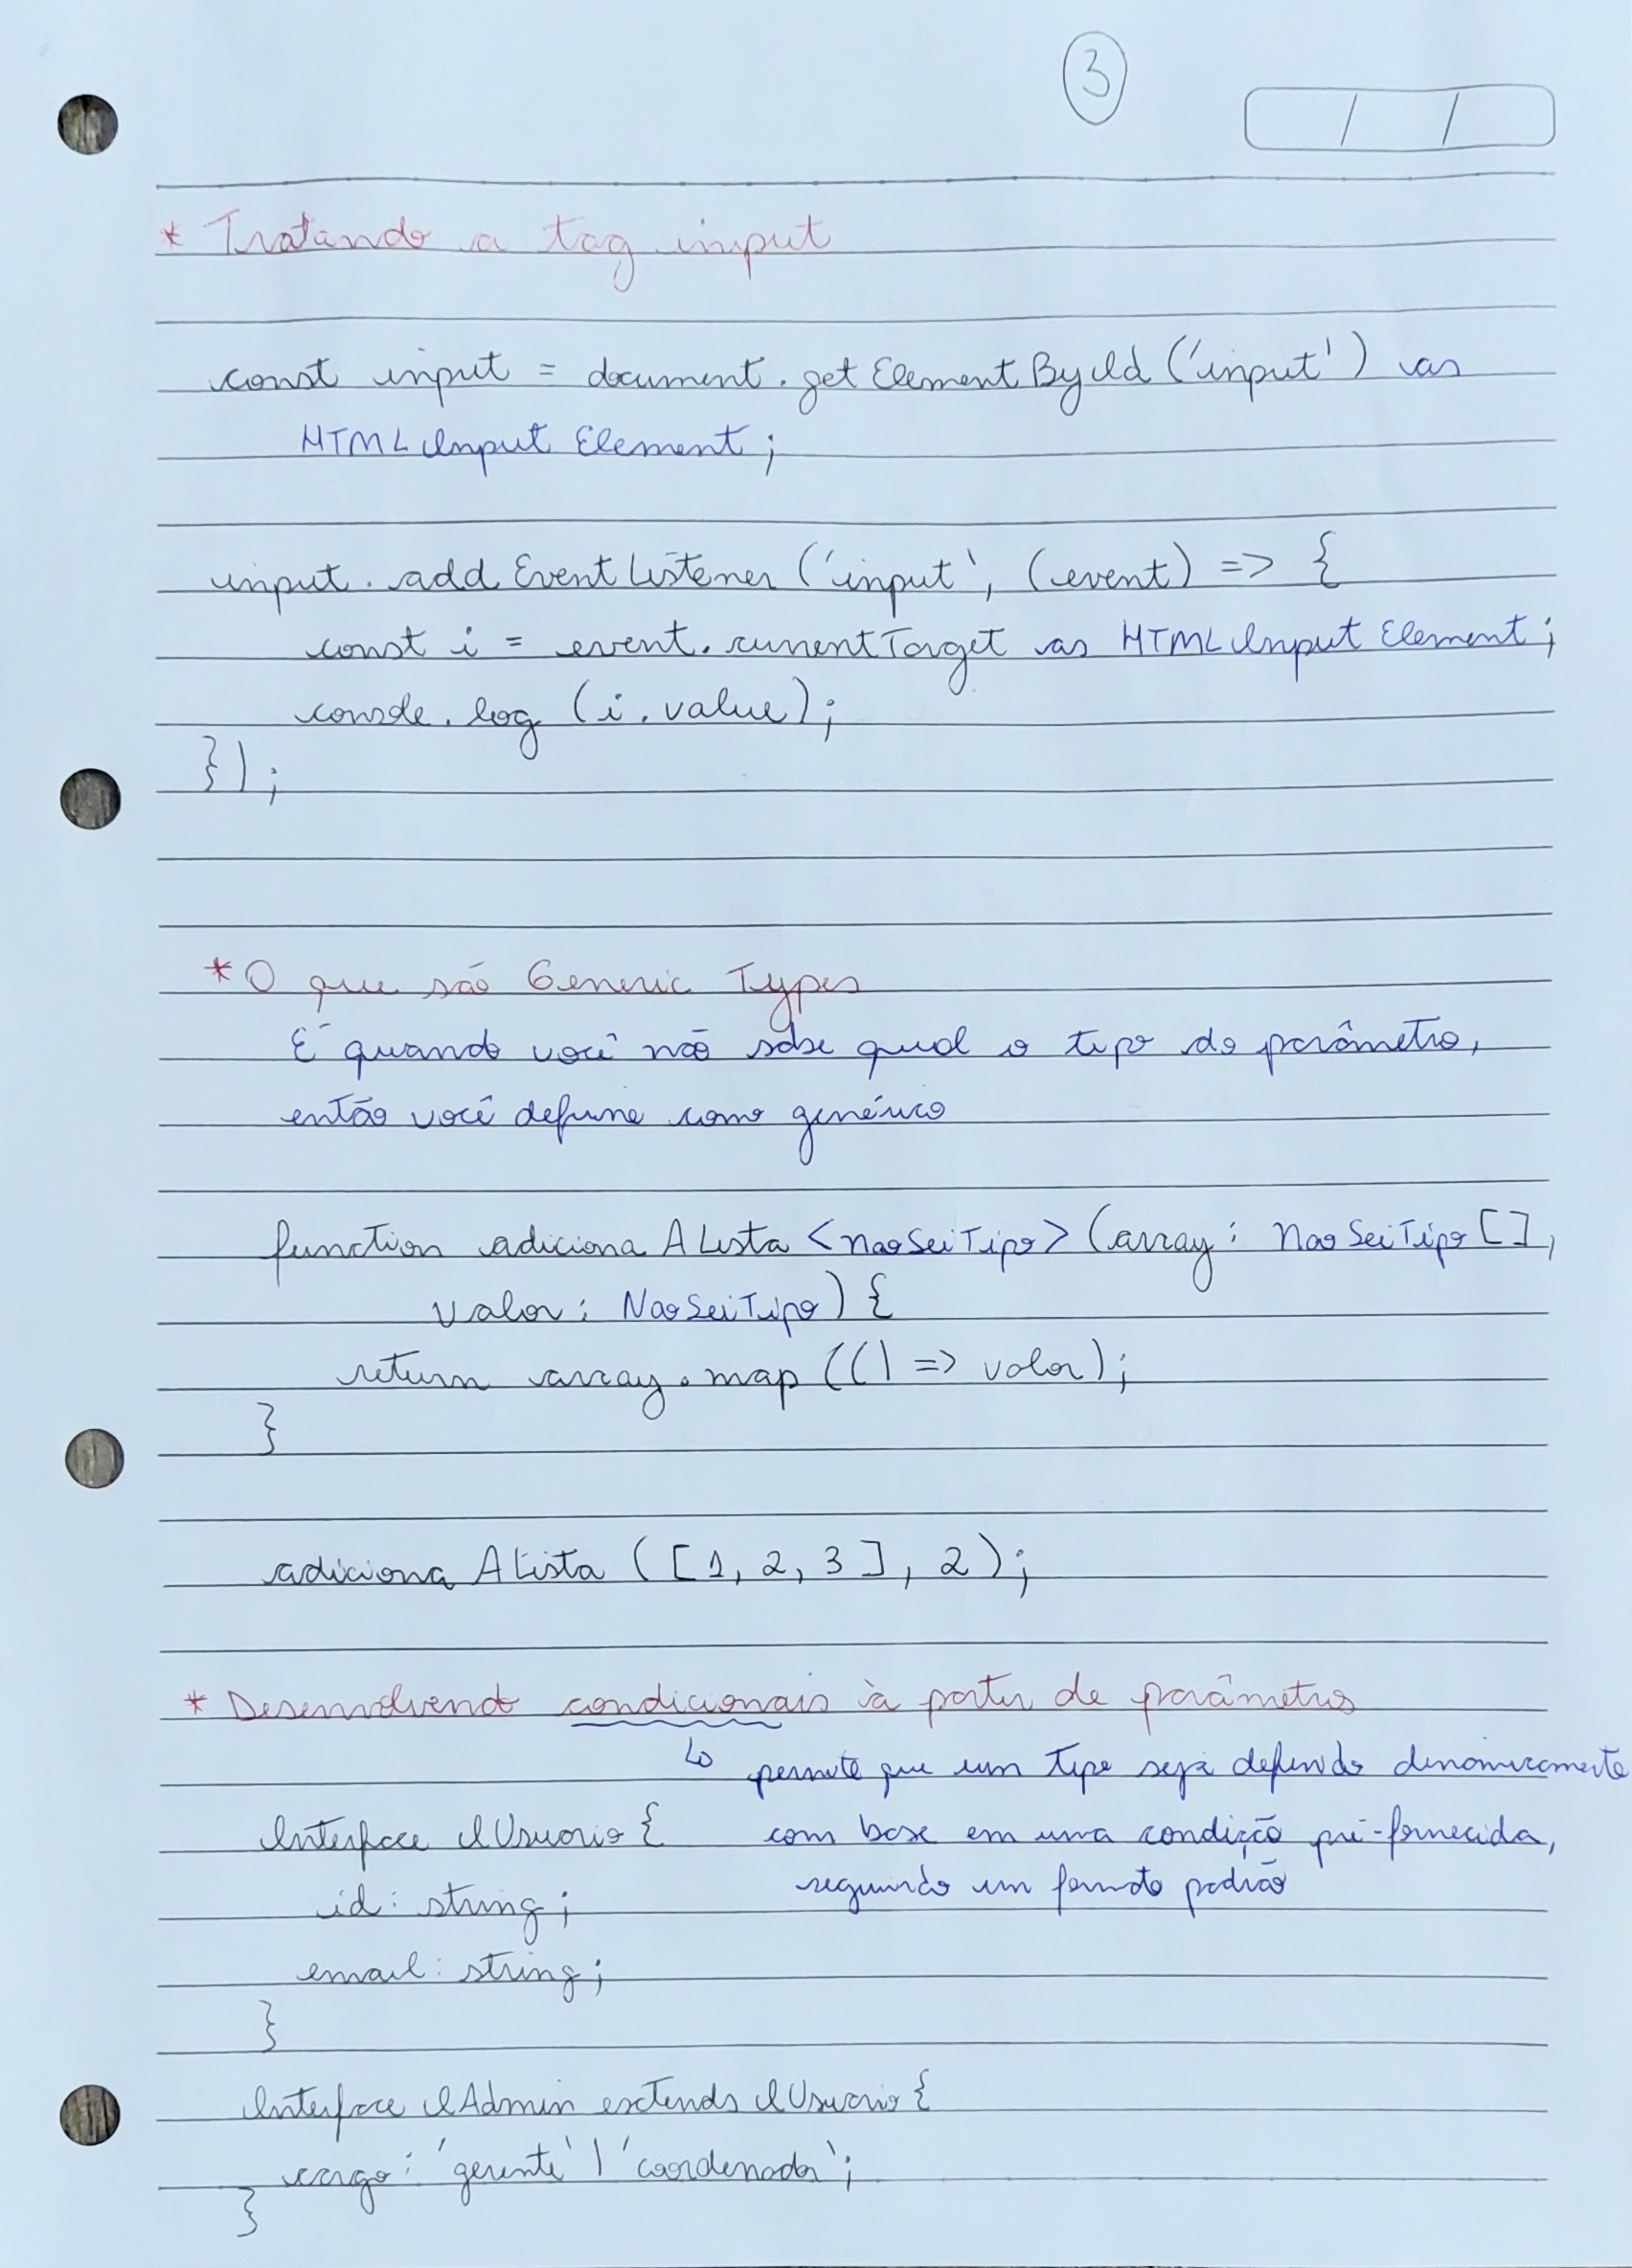 3
/ /
* Tratando a tag input
const input = document.getElementById('input') as
HTMLInputElement;
input.addEventListener('input', (event) => {
const i = event.currentTarget as HTMLInputElement;
console.log(i.value);
});
* O que são Generic Types
É quando você não sabe qual o tipo do parâmetro,
então você define como genérico
function adicionaALista<naoSeiTipo>(array: NaoSeiTipo[],
valor: NaoSeiTipo) {
return array.map(() => valor);
}
adicionaALista([1, 2, 3], 2);
* Desenvolvendo condicionais à partir de parâmetros
↳ permite que um tipo seja definido dinamicamente
Interface IUsuario { com base em uma condição pré-fornecida,
id: string; seguindo um formato padrão
email: string;
}
Interface IAdmin extends IUsuario {
cargo: 'gerente' | 'coordenador';
}